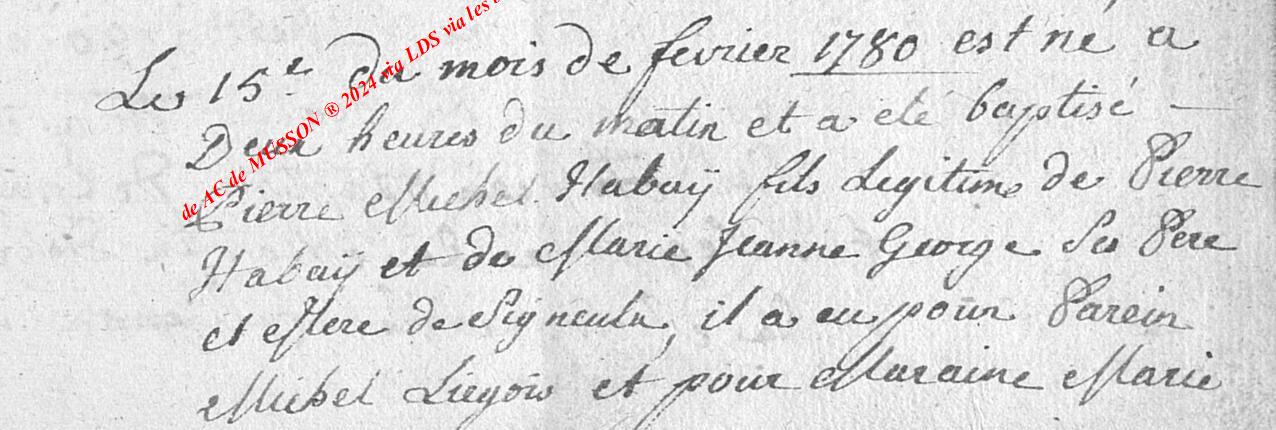 de AC de MUSSON ® 2024 via LDS via les
Le 15e du mois de fevrier 1780 est né a
Deux heures du matin et a eté baptisé
Pierre Michel Habaÿ fils Legitime de Pierre
Habaÿ et de Marie Jeanne George Ses Pere
et Mere de Signeulx, il a eu pour Parein
Michel Liegois et pour Maraine Marie